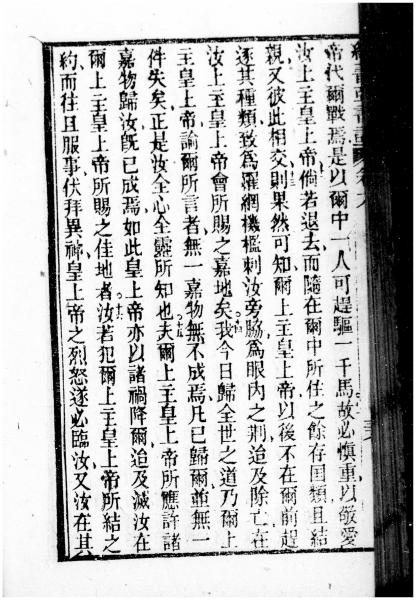 帝代爾戰焉是以爾中一人可趕驅一千馬故必慎重以敬愛
汝上主皇上帝倘若退去而隨在爾中所住之餘存囯類且結
親又彼此相交則果然可知爾上主皇上帝以後不在爾前趕
逐其種類致為羅網機檻刺汝旁脇為眼內之荊迨及除亡在
汝上主皇上帝會所賜之嘉地矣我今日歸全世之道乃爾上
主皇上帝諭爾所言者無一嘉物無不成焉凡已歸爾並無一
件失矣正是汝全心全靈所知也夫爾上主皇上帝所應許諸
嘉物歸汝旣已成焉如此皇上帝亦以諸禍降爾迨及滅汝在
爾上主皇上帝所賜之佳地者汝若犯爾上主皇上帝所結之
約而往且服事伏拜異神皇上帝之烈怒遂必臨汝又汝在其